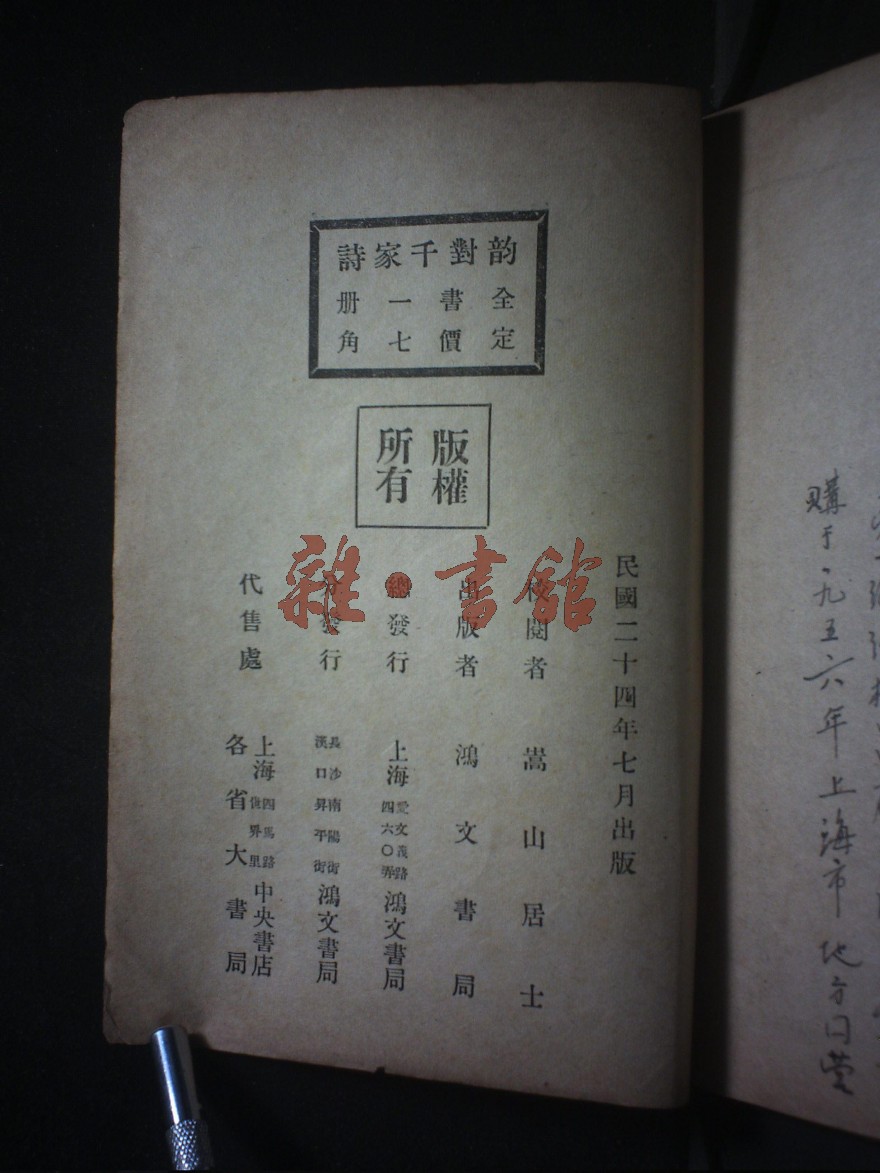 韵對千家詩
全書一册
定價七角
版權
所有
民國二十四年七月出版
校閱者 嵩山居士
出版者 鴻文書局
總發行 上海愛文義路四六〇弄鴻文書局
分發行 長沙南陽街漢口昇平街鴻文書局
代售處 上海四馬路世界里中央書店
各省大書局
雜·書館
購于一九五六年上海市地方国营